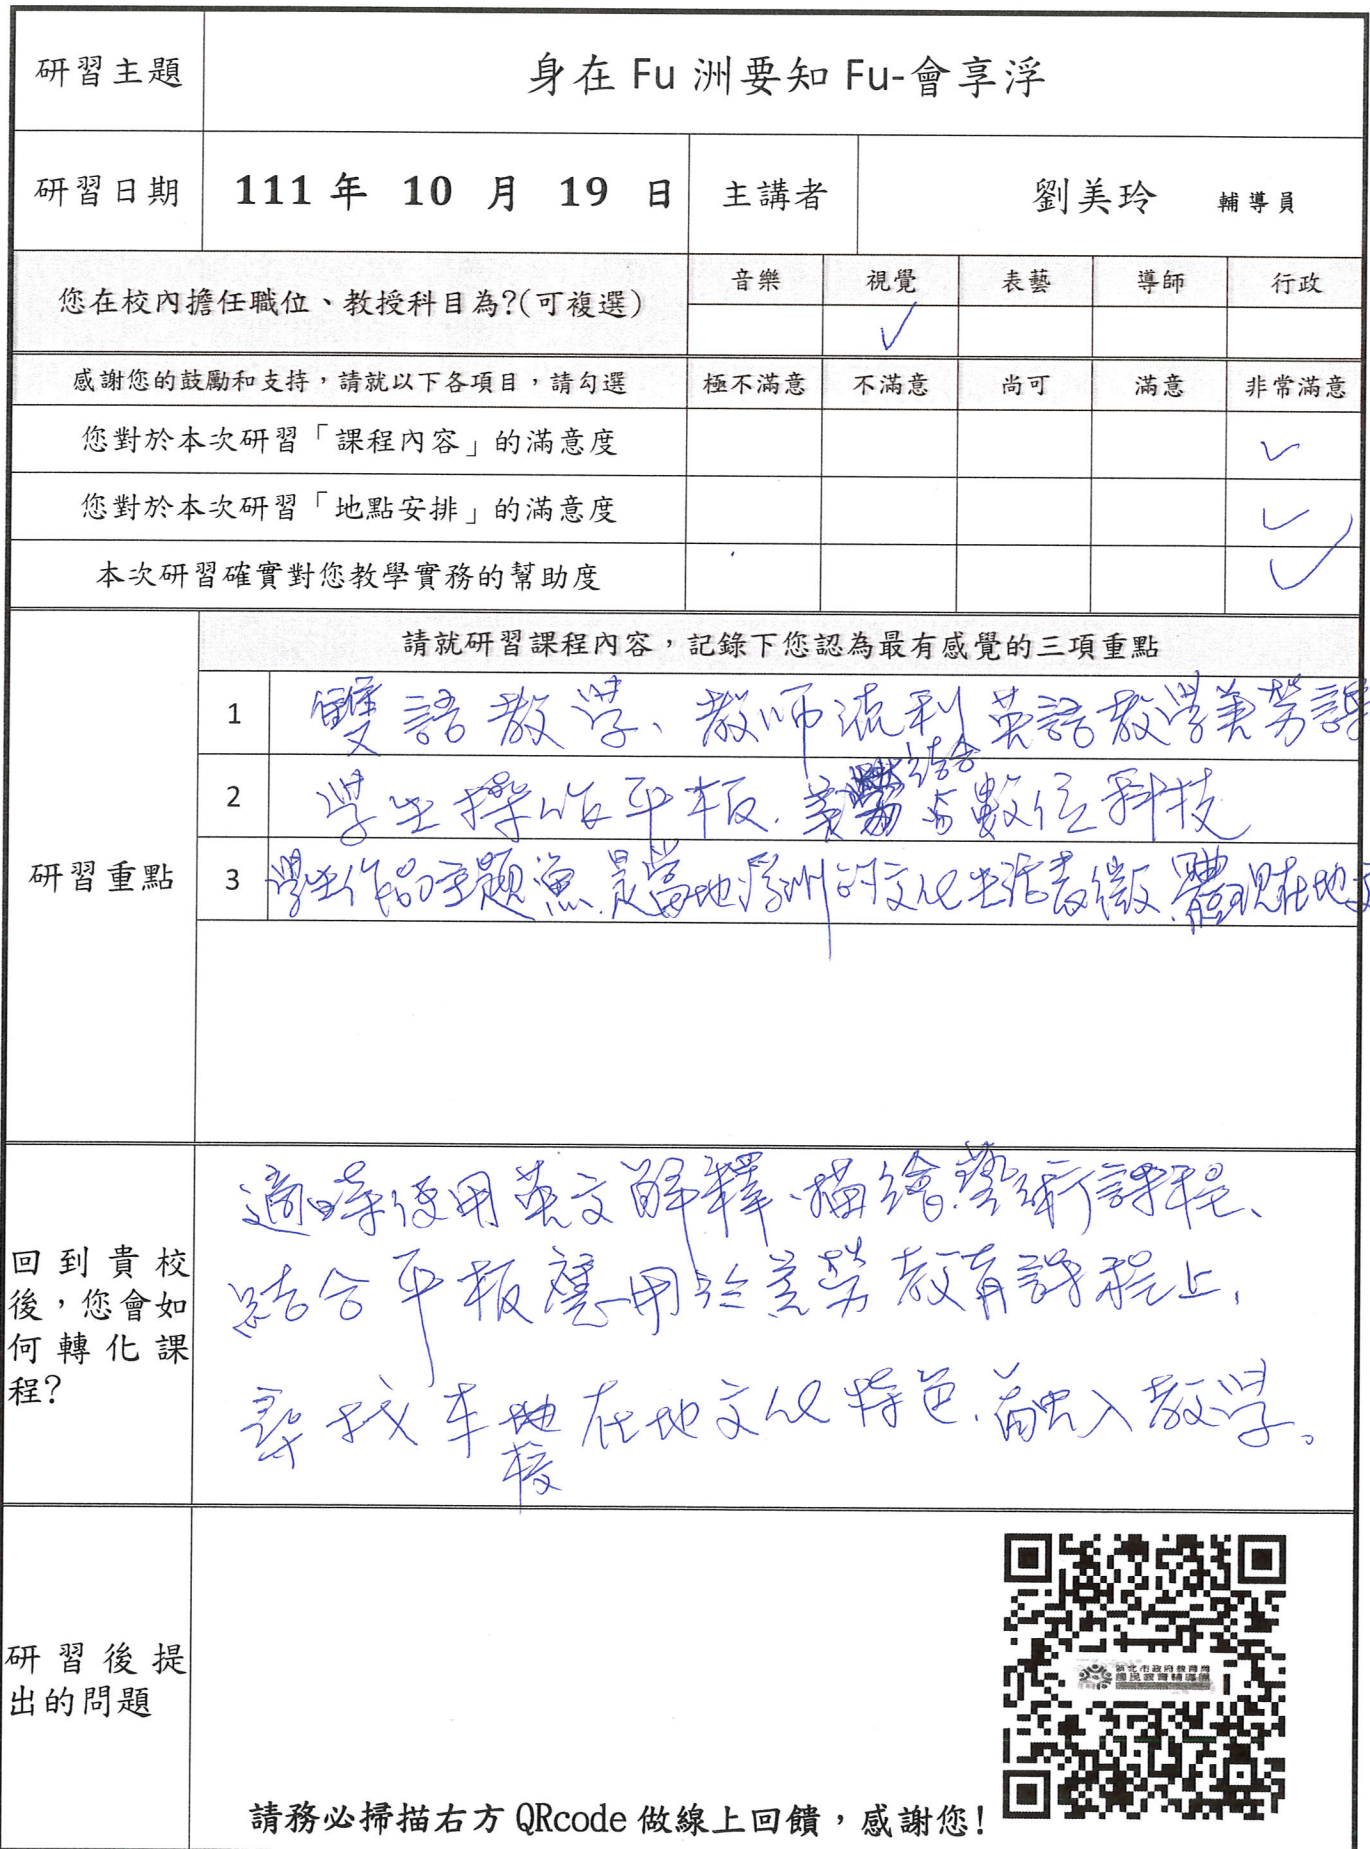 研習主題 身在 Fu 洲要知 Fu-會享浮
研習日期 111 年 10 月 19 日 主講者 劉美玲 輔導員
您在校內擔任職位、教授科目為?(可複選) 音樂 視覺 表藝 導師 行政
✓
感謝您的鼓勵和支持,請就以下各項目,請勾選 極不滿意 不滿意 尚可 滿意 非常滿意
您對於本次研習「課程內容」的滿意度 ✓
您對於本次研習「地點安排」的滿意度 ✓
本次研習確實對您教學實務的幫助度 ✓
研習重點
請就研習課程內容,記錄下您認為最有感覺的三項重點
1 雙語教學、教師流利英語教學美勞課
2 學生操作平板.美勞結合數位科技
3 學生作品主題魚.是當地浮洲的文化生活表徵.體現在地文
回到貴校
後,您會如
何轉化課
程?
適時使用英文解釋、描繪藝術課程、
結合平板應用於美勞教育課程上,
尋找本校在地文化特色.融入教學。
研習後提
出的問題
新北市政府教育局
國民教育輔導團
請務必掃描右方 QRcode 做線上回饋,感謝您!